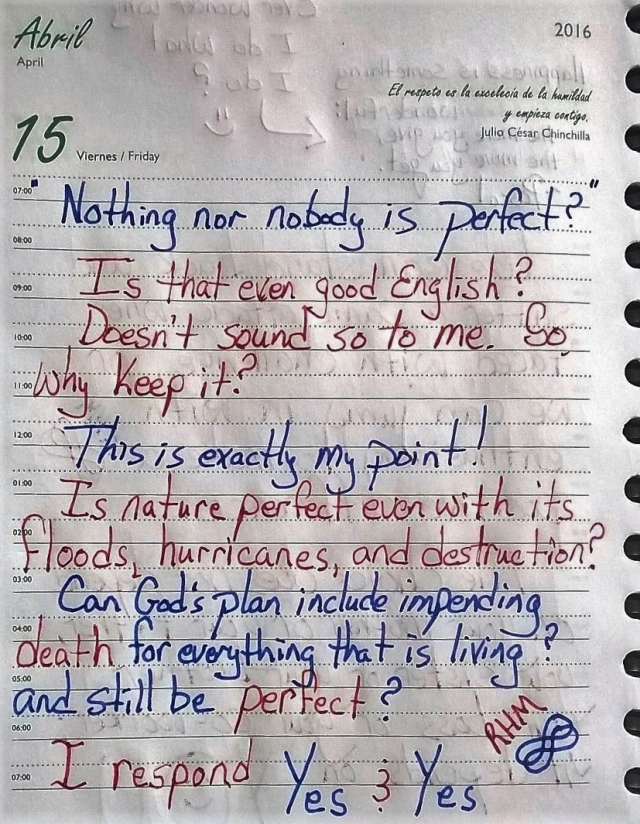 Abril
April
2016
El respeto es la excelecia de la humildad
y empieza contigo.
Julio César Chinchilla
15 Viernes / Friday
07:00 "Nothing nor nobody is perfect?"
08:00
09:00 Is that even good English?
10:00 Doesn't sound so to me. So
11:00 Why Keep it?
12:00 This is exactly my point!
01:00 Is nature perfect even with its
02:00 floods, hurricanes, and destruction?
03:00 Can God's plan include impending
04:00 death for everything that is living?
05:00 and still be perfect?
06:00 RHM
07:00 I respond Yes & Yes